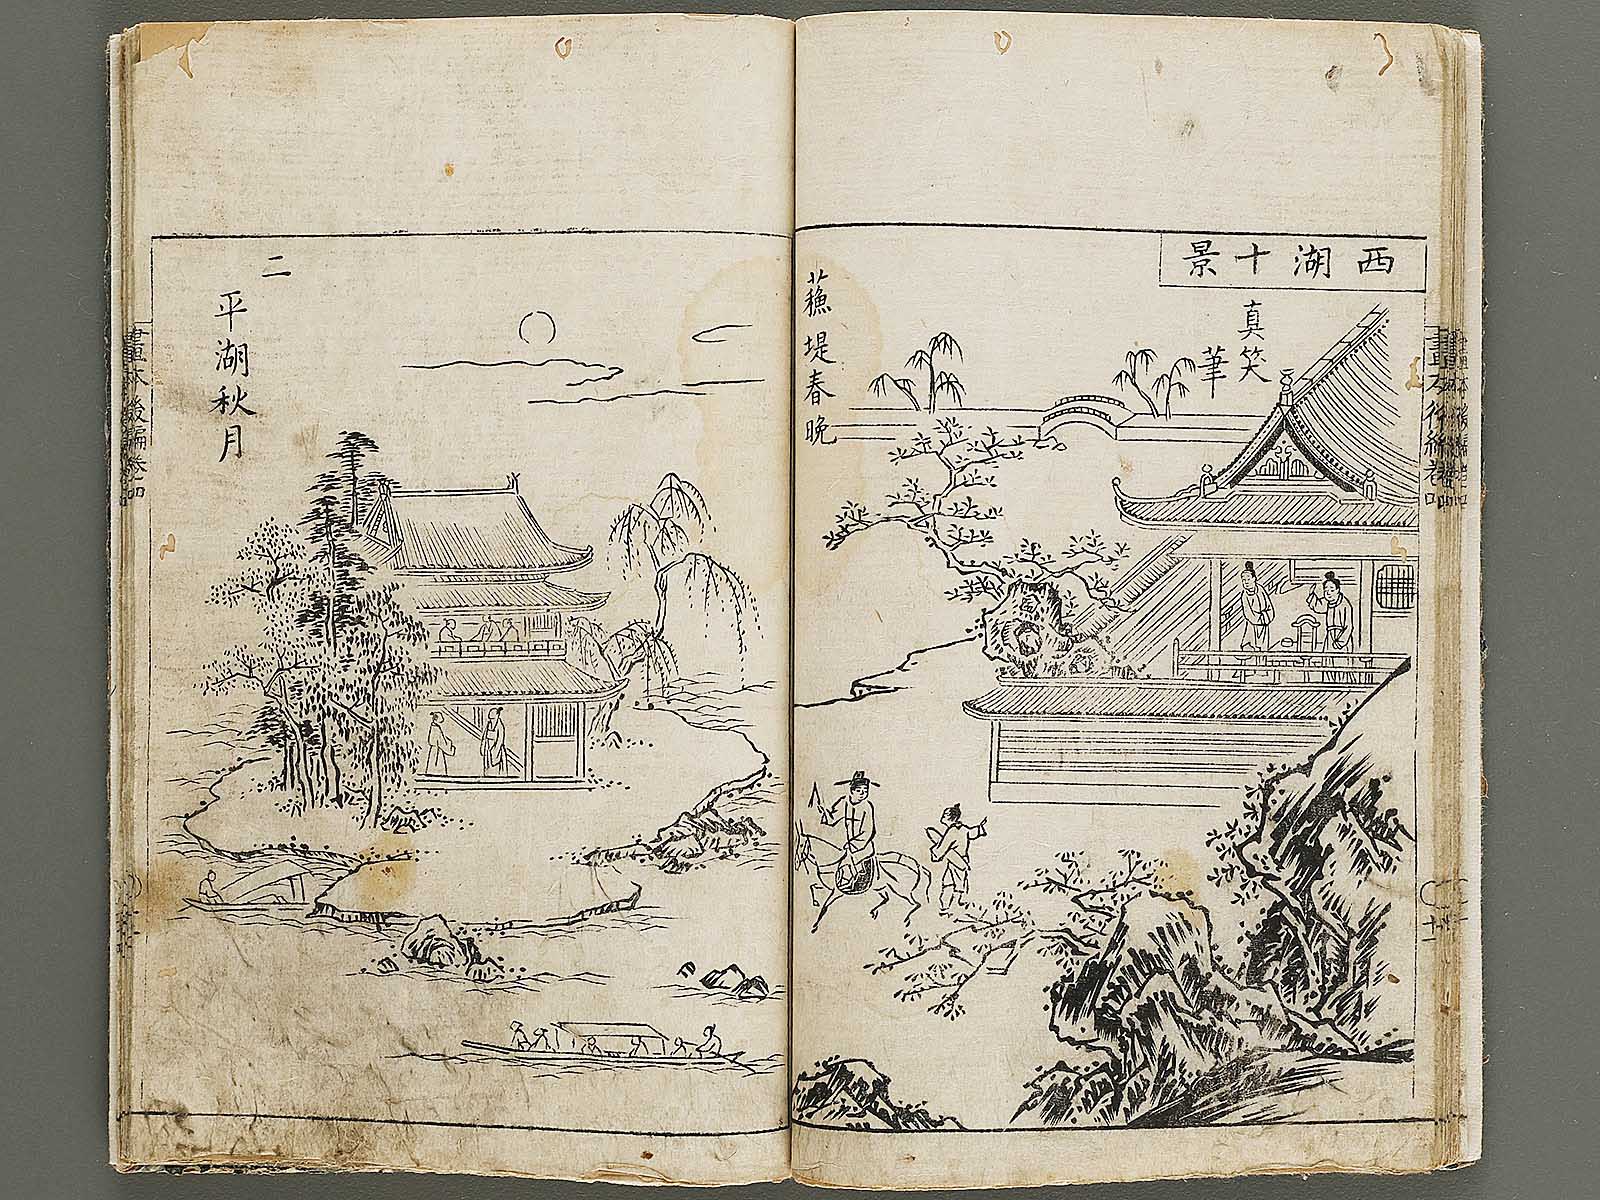 西湖十景
真笑
筆
蘓堤春晩
二
平湖秋月
畫本後編巻四